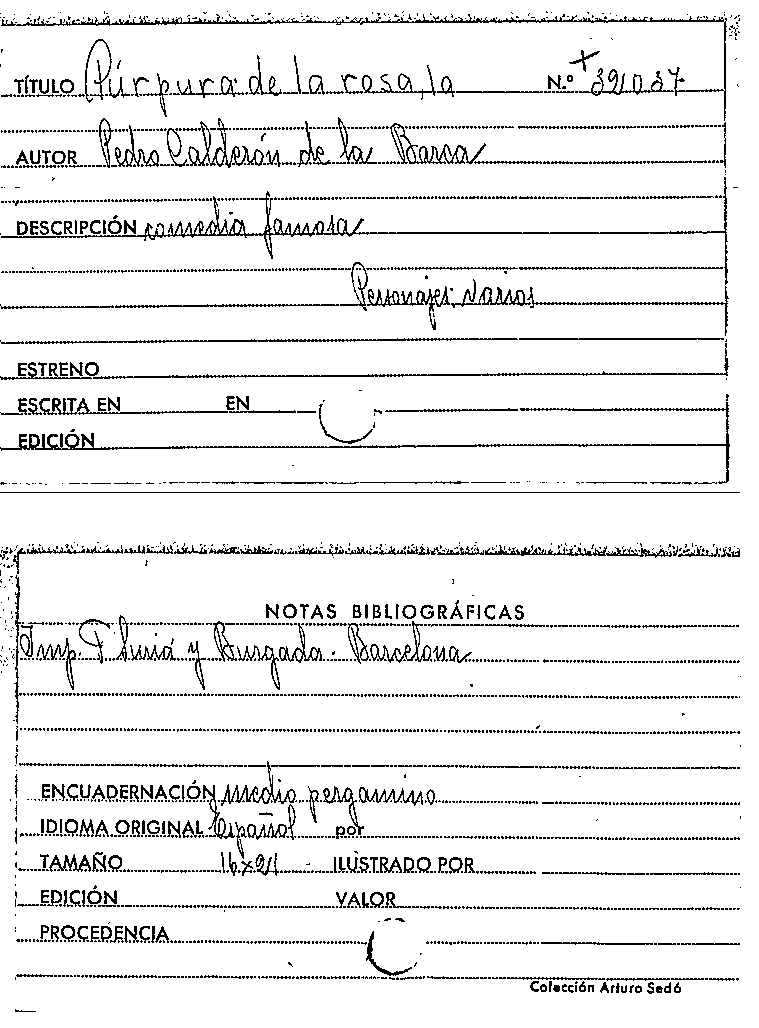 TÍTULO Púrpura de la rosa, la N.º + 391037
AUTOR Pedro Calderón de la Barca
DESCRIPCIÓN comedia famosa
Personajes: varios
ESTRENO
ESCRITA EN EN
EDICIÓN
NOTAS BIBLIOGRÁFICAS
Imp. F Suriá y Burgada. Barcelona
ENCUADERNACIÓN medio pergamino
IDIOMA ORIGINAL Español por
TAMAÑO 16x21 - ILUSTRADO POR
EDICIÓN VALOR
PROCEDENCIA
Colección Arturo Sedó